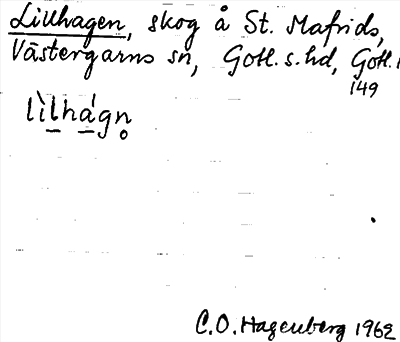 Lillhagen, skog å St. Mafrids,
Västergarns sn, Gotl. s. hd, Gotl.
149
lìlhágn̥
C. O. Hagenberg 1962